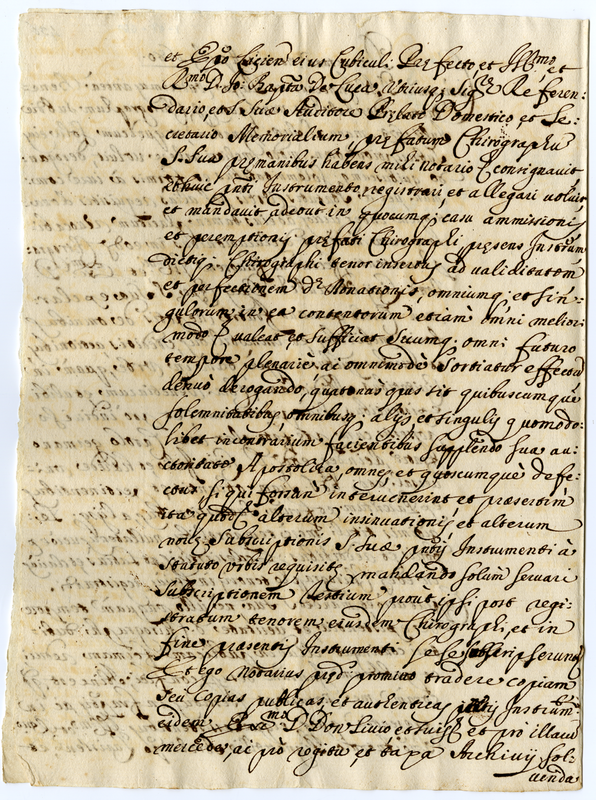 et pro licien eius Cubiculi Præfecto, et Ill.mo et
R.mo D. Jo: Bapta De Luca Utriusq; Sig.re Referen=
dario, et S. Suæ Auditore Prælato Domestico, et Se=
cretario Memorialium præfatum Chirographū
S. Suæ præ manibus habens mihi Notario consignavit
et huic pnti Instrumento registrari, et allegari voluit
et mandavit, adeout in quocumq; casu ammissionis
et peremptionis præfati Chirographi, præsens Instrum
dictiq; Chirographi tenor insertus ad validitatem
et perfectionem d.æ Donationis, omniumq; et sin=
gulorum in ea contentorum etiam omni meliori
modo valeat, et sufficiat, suumq; omni futuro
tempore plenariè, ac omnimodè sortiatur effectū
denuò derogando, quatenus opus sit quibuscumque
solemnitatibus omnibusq; alijs, et singulis quomodo=
libet incontrarium facientibus supplendo sua au=
ctoritate Apostolica omnes, et quoscumque defe=
ctus, si qui forsan intervenerint et præsertim
ita quod alterum insinuationis, et alterum
non subscriptionis S. Suæ pntis Instrumenti à
statuto Urbis requisitæ, mandando solum servari
subscriptionem testium, prout ipsi post regi=
stratum tenorem eiusdem Chirographi, et in
fine præsentis Instrumenti se se subscripserunt
Et ego Notarius pred. promitto tradere copiam
seu copias publicas, et authenticas pntis Instrum.ti
eidem Ill.mo D. Don Livio, et suis, et pro illarū
mercede, ac pro rogitu, et tapa Archivij sol=
venda